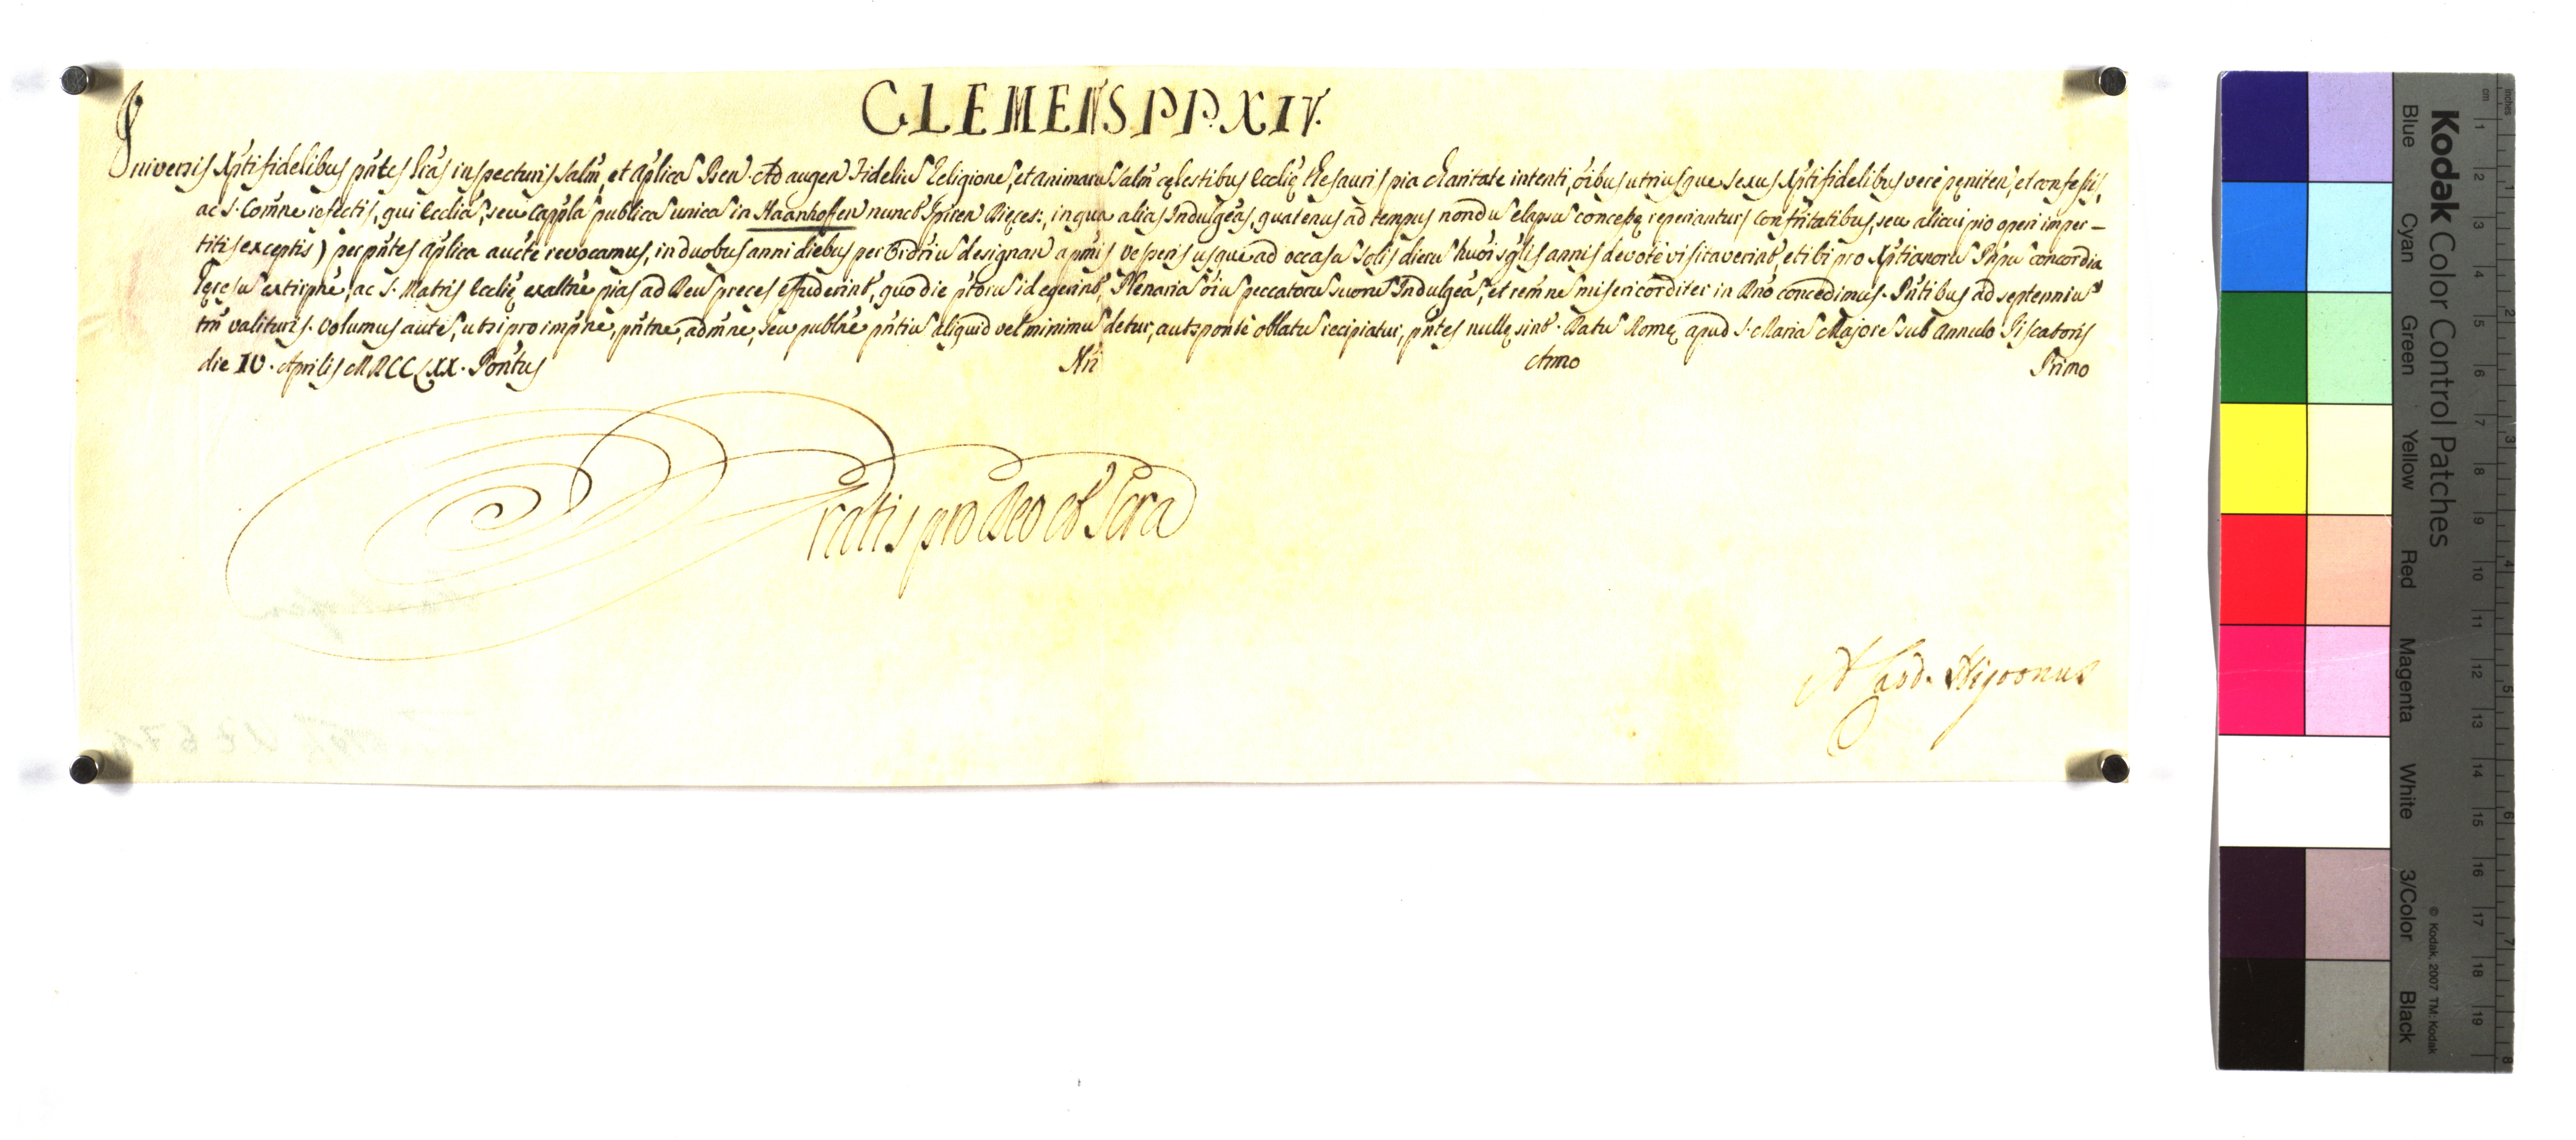 CLEMENS PP. XIV.
Universis Xpti fidelibus pñtes Lrãs inspecturis Salm̃, et aplicã Ben. Ad augen Fideliũ Religionẽ, et animarũ Salm̃ cęlestibus Ecclię thesauris pia charitate intenti, õibus utriusque sexus Xpti fidelibus verè pęniten, et confessis,
ac S. Comñe refectis, qui Eccliã, seu Cappłã publicã unicã in Haanhoffen nunct Spiren Diẹces:, in qua alias Indulgẽas, quatenus ad tempus nondũ elapsũ concessę reperiantur, confritatibus, seu alicui pio operi imper-
titis exceptis) per pñtes aplica aucte revocamus, in duobus anni diebus per Ordriũ designan a pmis vesperis usque ad occasũ Solis dierũ huõi sglis annis devotè visitaverint, et ibi pro Xptianorũ Pnpũ concordia
Hęresũ extirpñe, ac S. Matris Ecclię exaltñe pias ad Deũ preces effuderint, quo die ptorũ id egerint, Plenariã õiũ peccatorũ suorũ Indulgẽã, et remñẽ misericorditer in Dño concedimus. Pñtibus ad septenniũ
tm̃ valituris. Volumus autẽ, ut si pro impñe, pñtne, admñe, seu publñe pñtiũ aliquid vel minimũ detur, aut sponte oblatũ recipiatur, pñtes nullę sint. Datũ Romę apud S. Mariã Majorẽ sub Annulo Piscatoris
die IV. Aprilis MDCCLXX. Pontus Nri Anno Primo
Gratis pro Deo et Scra
Kodak Color Control Patches
Blue Cyan Green Yellow Red Magenta White 3/Color Black
© Kodak, 2007 TM: Kodak
cm 1 2 3 4 5 6 7 8 9 10 11 12 13 14 15 16 17 18 19
inches 1 2 3 4 5 6 7 8